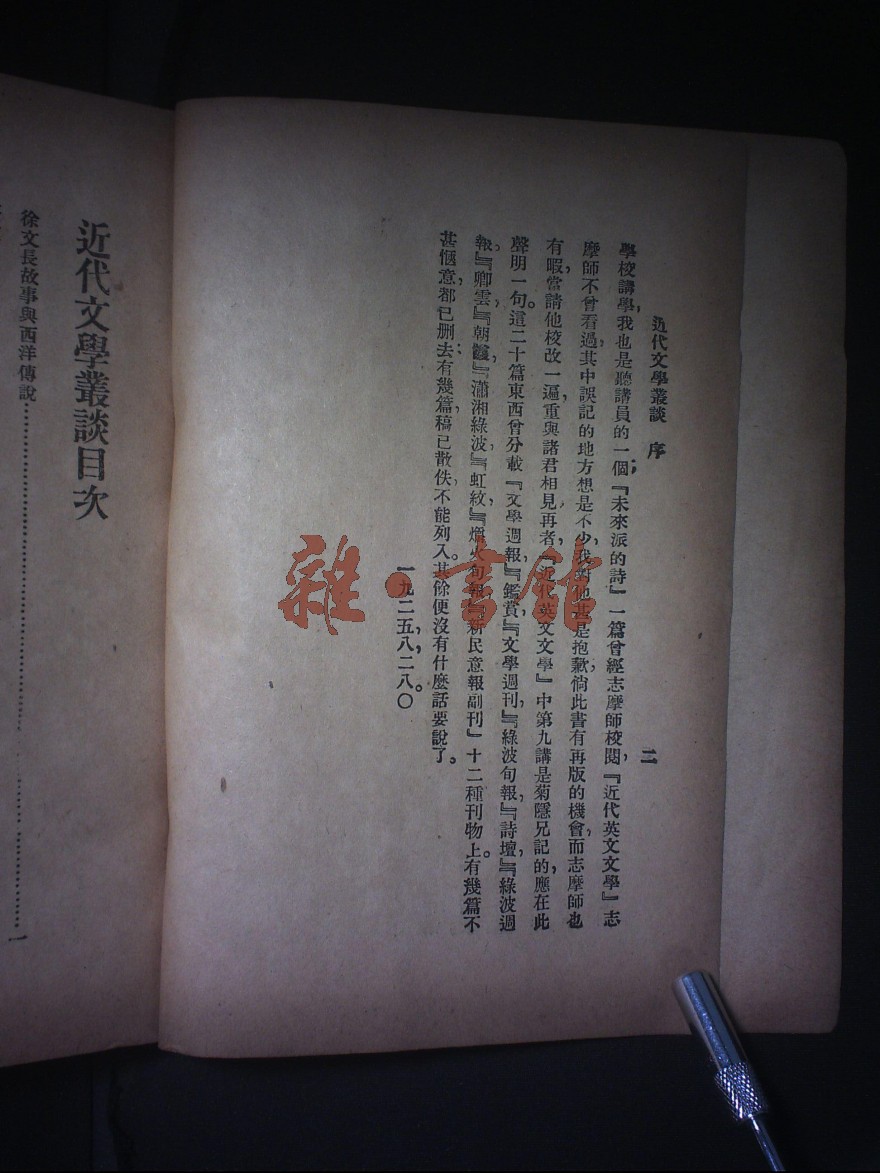 近代文學叢談 序
二
學校講學，我也是聽講員的一個；『未來派的詩』一篇曾經志摩師校閱，『近代英文文學』志
摩師不曾看過，其中誤記的地方想是不少，我對他甚是抱歉，倘此書有再版的機會，而志摩師也
有暇，當請他校改一遍，重與諸君相見，再者，『近代英文文學』中第九講是菊隱兄記的，應在此
聲明一句。這二十篇東西曾分載『文學週報』，『鑑賞』，『文學週刊』，『綠波旬報』，『詩壇』，『綠波週
報』，『卿雲』，『朝霞』，『瀟湘綠波』，『虹紋』，『爝火旬報』，『新民意報副刊』十二種刊物上。有幾篇不
甚愜意，都已刪去；有幾篇，稿已散佚，不能列入。其餘便沒有什麼話要說了。
一九二五，八，二八。〇
近代文學叢談目次
徐文長故事與西洋傳說……………………………………………一
雜·書館